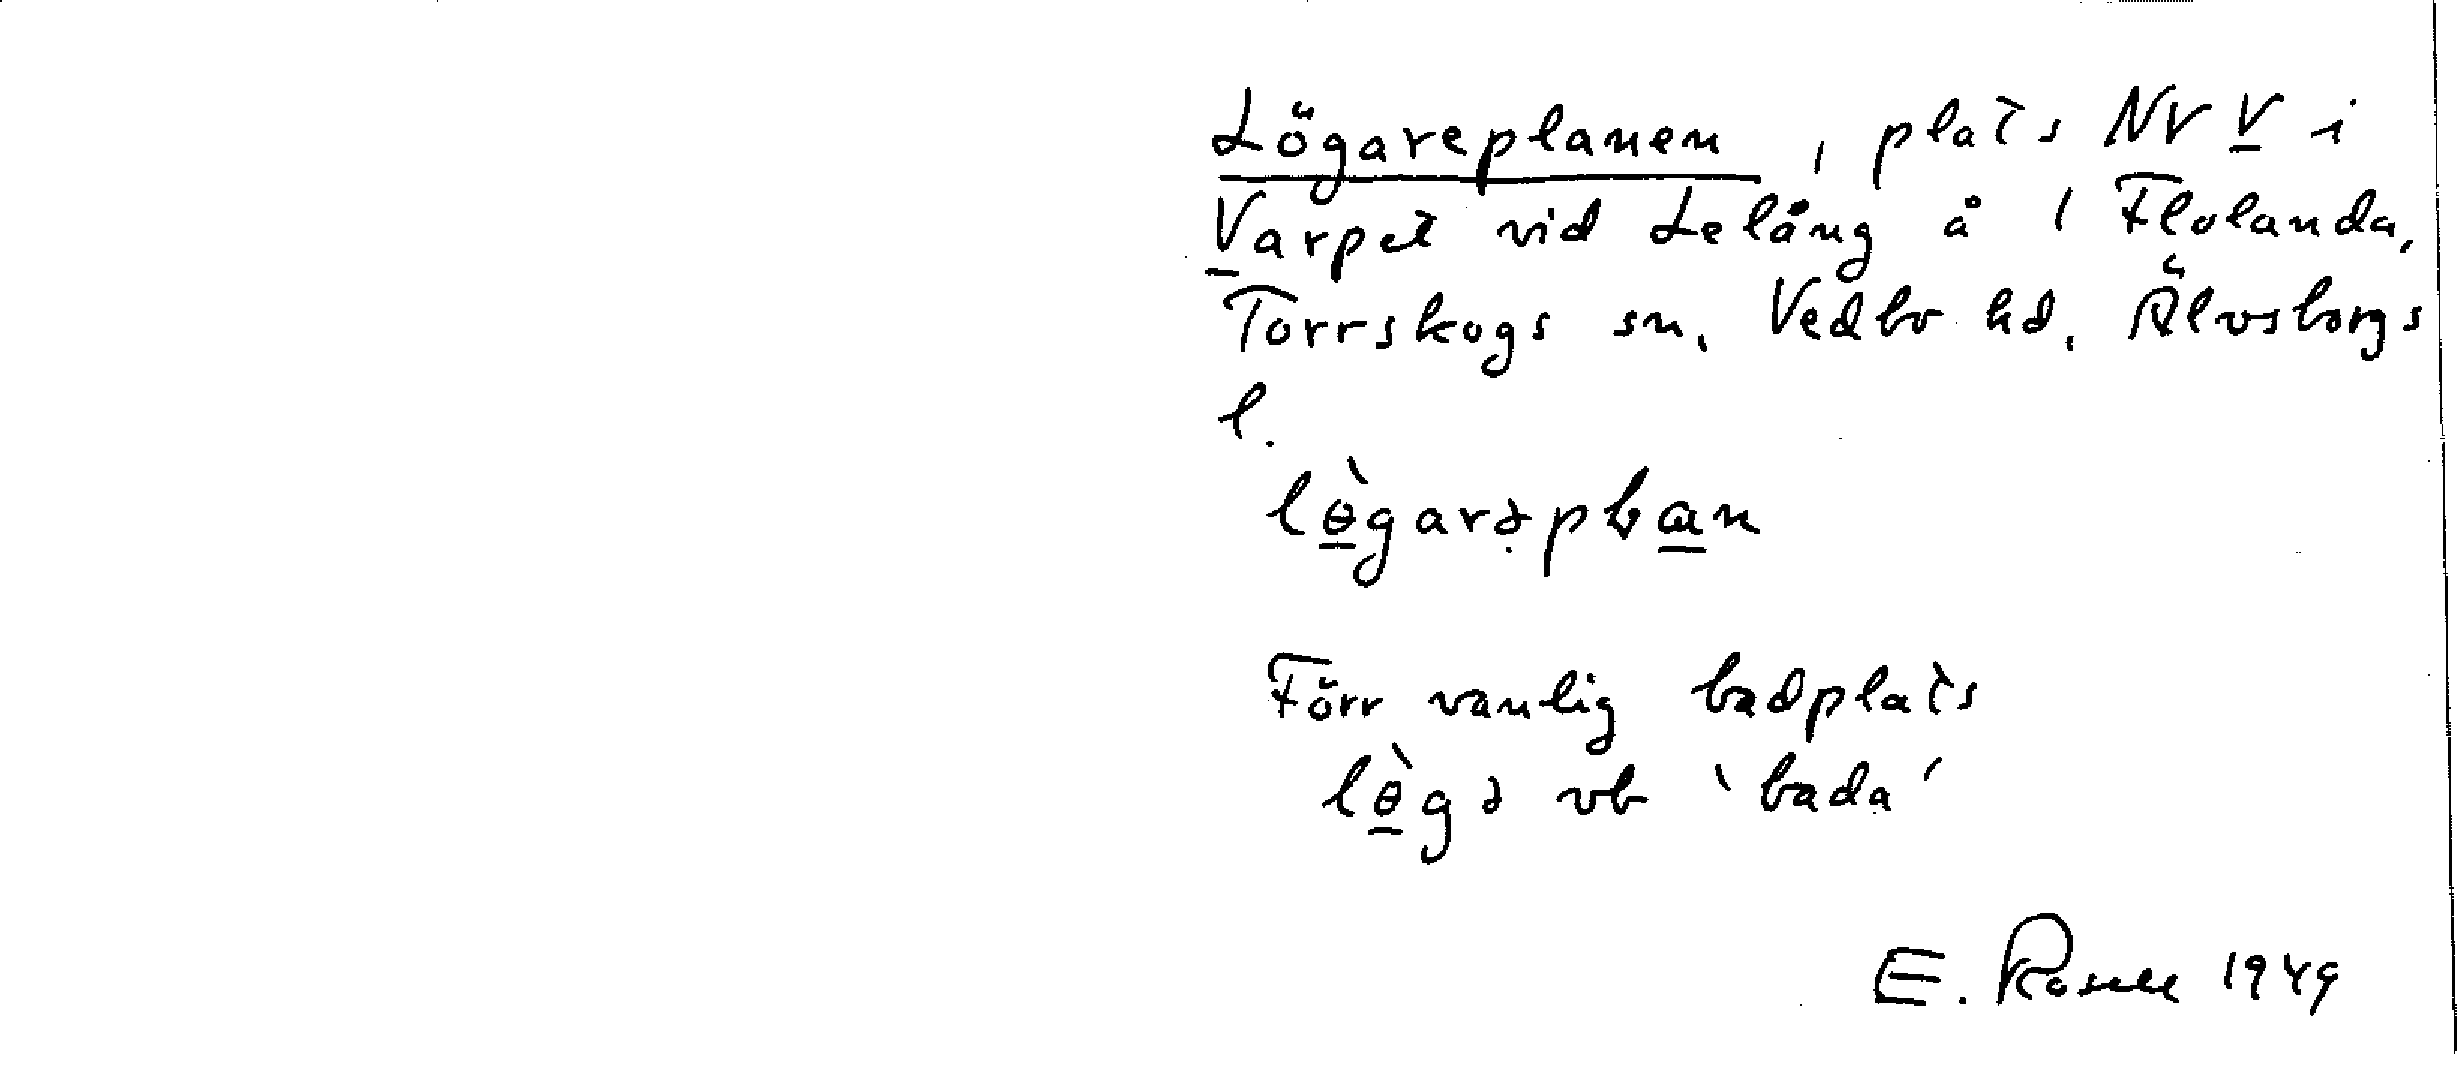 Lögareplanen, plats NV V i
Varpet vid Lelång å i Flolanda,
Torrskogs sn, Vedbo hd, Älvsborgs
l.
lɵ̀garəpɫɑn
Förr vanlig badplats
lɵ̀gə vb 'bada'
E. Rosell 1949